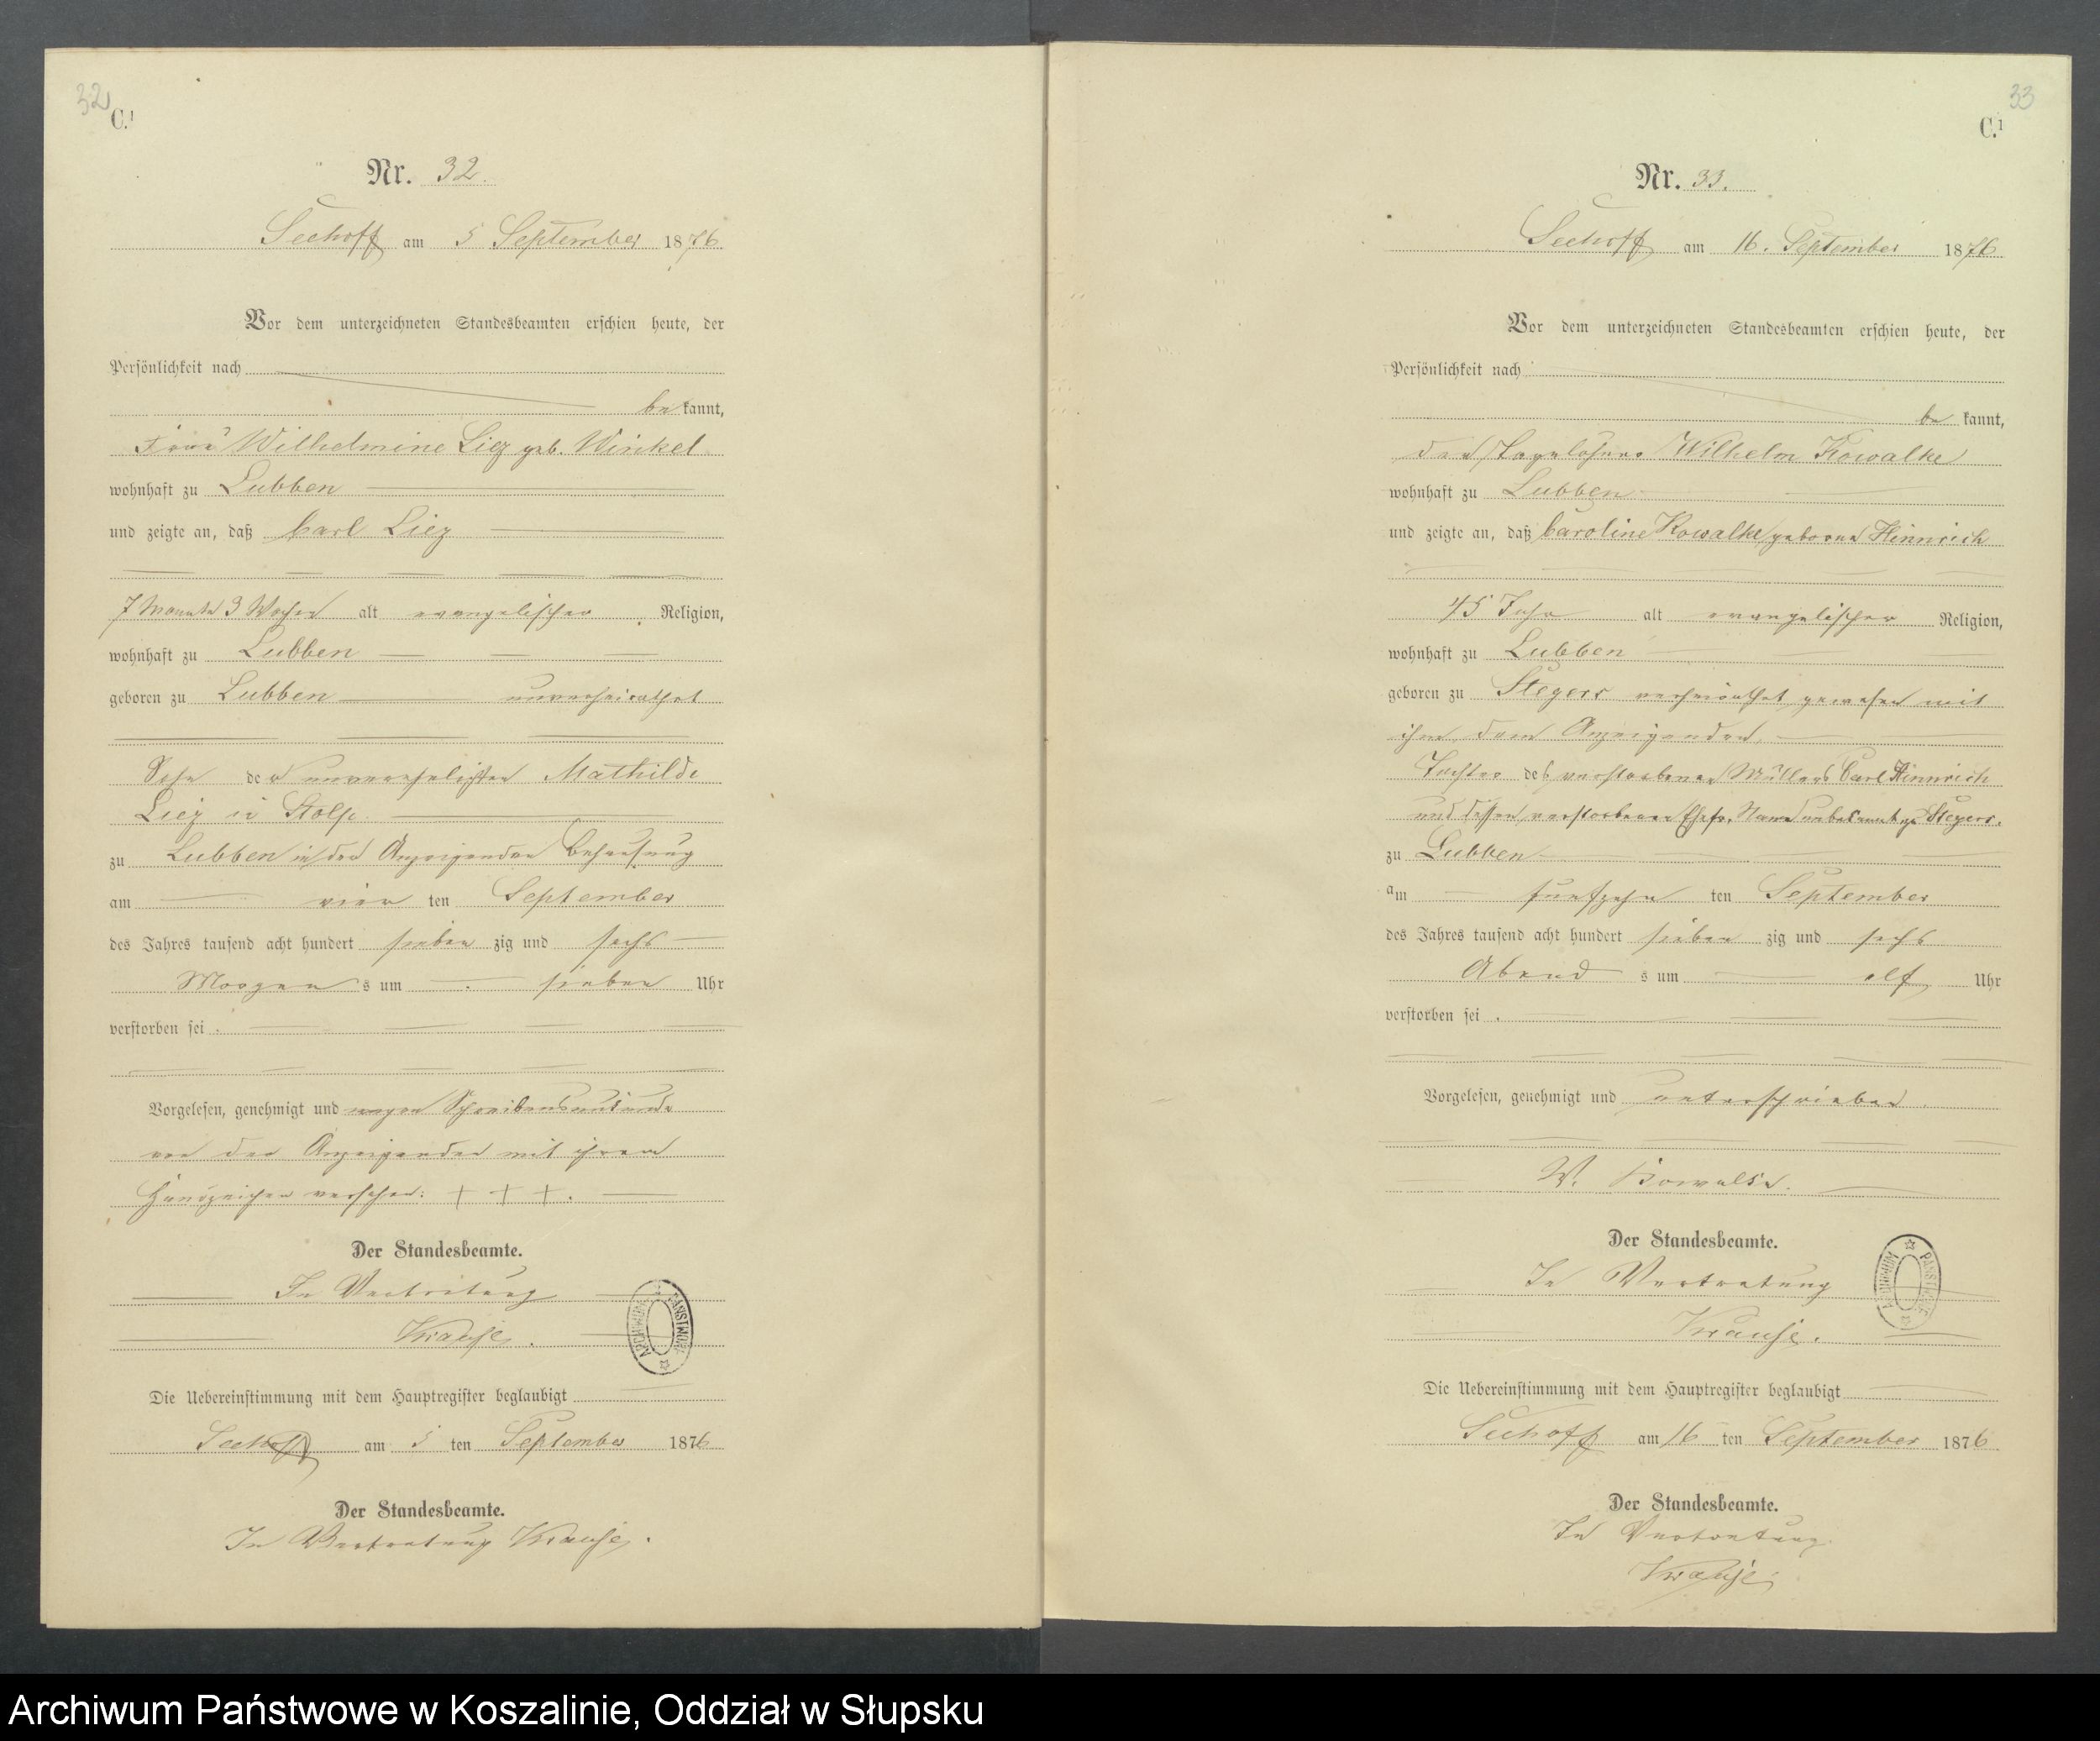 32
C.¹
Nr. 32.
Seehoff am 5 September 1876
Vor dem unterzeichneten Standesbeamten erschien heute, der
Persönlichkeit nach
be kannt,
Frau Wilhelmine Liez geb. Winkel
wohnhaft zu Lubben
und zeigte an, daß Carl Liez
7 Monate 3 Wochen alt evangelischer Religion,
wohnhaft zu Lubben
geboren zu Lubben unverheirathet
Sohn der unverehelichten Mathilde
Liez in Stolp.
zu Lubben in der Anzeigenden Behausung
am vier ten September
des Jahres tausend acht hundert sieben zig und sechs
Morgen s um sieben Uhr
verstorben sei.
Vorgelesen, genehmigt und wegen Schreibensunkunde
von der Anzeigenden mit ihrem
Handzeichen versehen: + + +.
Der Standesbeamte.
In Vertretung
Krause.
ARCHIWUM PAŃSTWOWE
Die Uebereinstimmung mit dem Hauptregister beglaubigt
Seehoff am 5 ten September 1876
Der Standesbeamte.
In Vertretung Krause.
33
C.¹
Nr. 33.
Seehoff am 16. September 1876
Vor dem unterzeichneten Standesbeamten erschien heute, der
Persönlichkeit nach
be kannt,
der Tagelöhner Wilhelm Kowalke
wohnhaft zu Lubben
und zeigte an, daß Caroline Kowalke geborne Hinnrich
45 Jahr alt evangelischer Religion,
wohnhaft zu Lubben
geboren zu Stegers verheirathet gewesen mit
ihm, dem Anzeigenden,
Tochter des verstorbenen Müllers Carl Hinnrich
und dessen verstorbener Ehefr. Name unbekannt zu Stegers.
zu Lubben
am fünfzehn ten September
des Jahres tausend acht hundert sieben zig und sechs
Abend s um elf Uhr
verstorben sei.
Vorgelesen, genehmigt und unterschrieben.
W. Kowalke.
Der Standesbeamte.
In Vertretung
Krause.
ARCHIWUM PAŃSTWOWE
Die Uebereinstimmung mit dem Hauptregister beglaubigt
Seehoff am 16 ten September 1876
Der Standesbeamte.
In Vertretung
Krause
Archiwum Państwowe w Koszalinie, Oddział w Słupsku